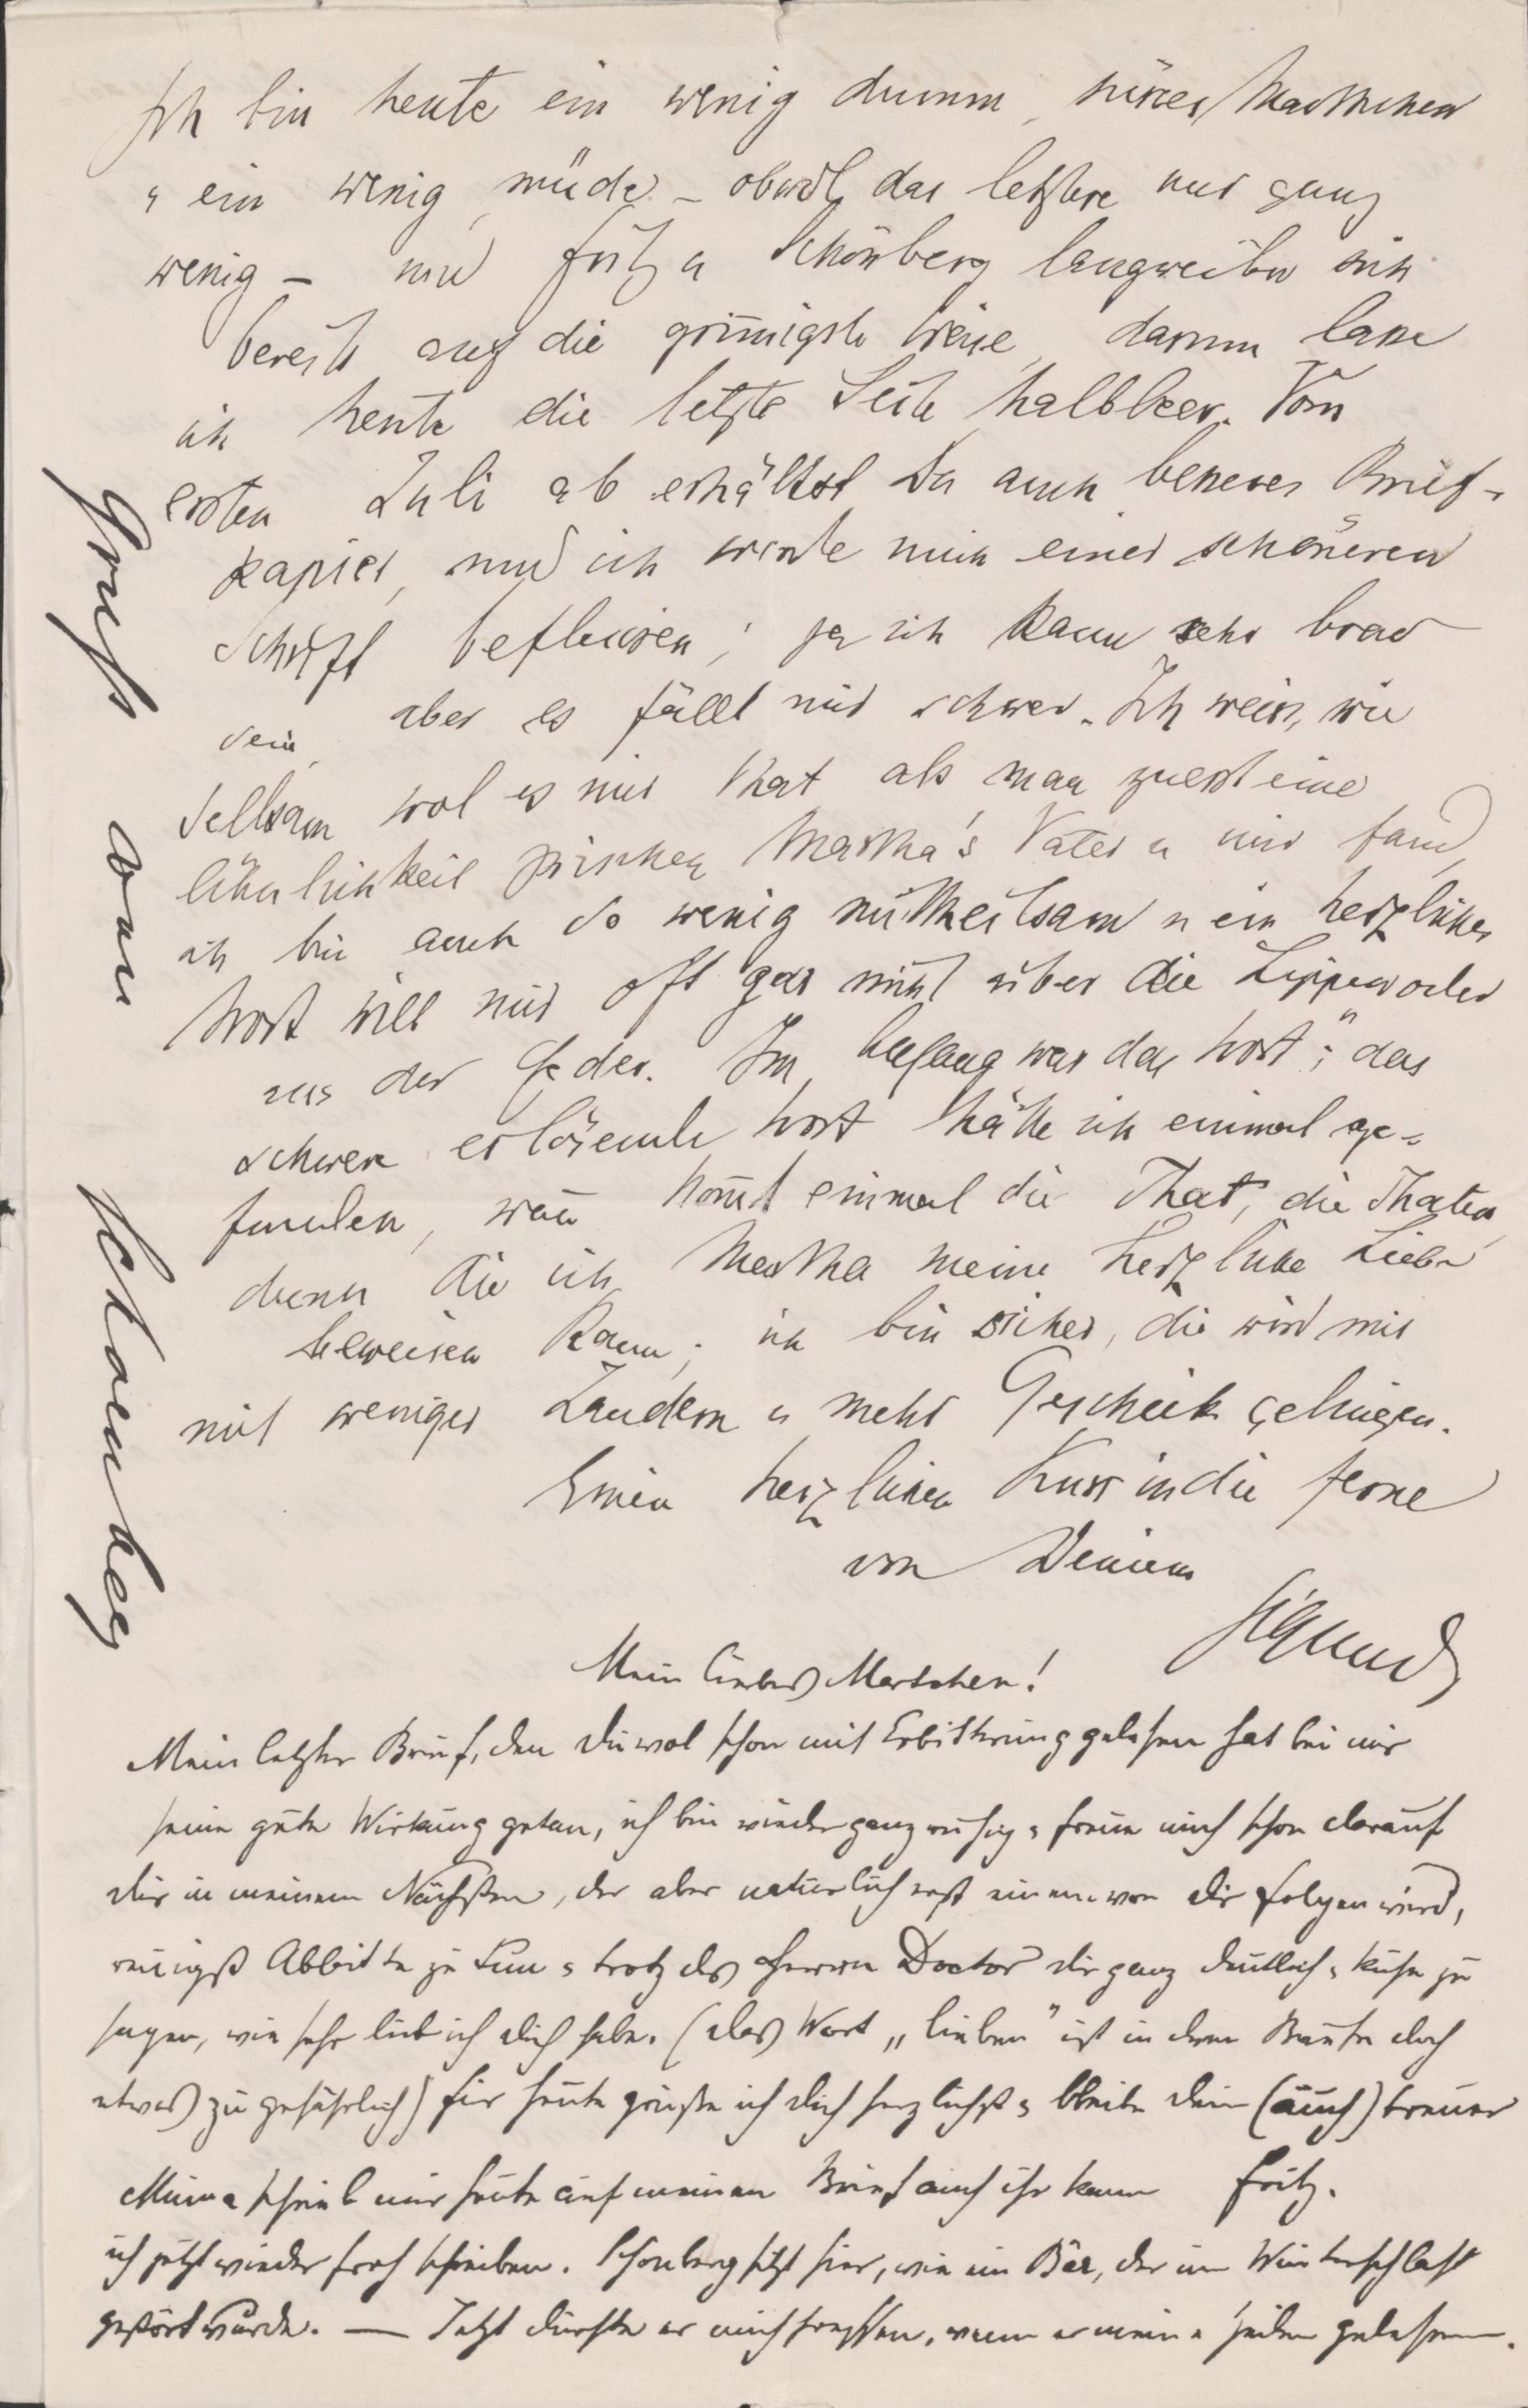 Ich bin heute ein wenig dumm, süsses Marthchen
u ein wenig müde – obwol das letztere nur ganz
wenig – und Fritz u Schönberg langweilen sich
bereits auf die grimigste Weise, darum lasse
ich heute die letzte Seite halbleer. Vom
ersten Juli ab erhältst Du auch besseres Brief-
papier, und ich werde mich einer schöneren
Schrift befleissen; ja ich kann sehr brav
sein, aber es fällt mir schwer. Ich weiss, wie
seltsam wol es mir that als man zuerst eine
Ähnlichkeit zwischen Martha's Vater u mir fand,
ich bin auch so wenig mittheilsam u ein herzliches
Wort will mir oft gar nicht über die Lippen oder
aus der Feder. Im Anfang war das Wort"; das
schwere erlösende Wort hätte ich einmal ge-
funden, wañ kom̄t einmal die That, die Thaten,
durch die ich Martha meine herzliche Liebe
beweisen kann; ich bin sicher, die wird mir
mit weniger Zaudern u mehr Geschick gelingen.
Einen herzlichen Kuss in die Ferne
von Deinem
Sigmund
Mein liebes Martchen!
Mein letzter Brief, den Du wol schon mit Erbitterung gelesen hat bei mir
seine gute Wirkung getan, ich bin wieder ganz ruhig u freue mich schon darauf
dir in meinem Nächsten, der aber natürlich erst einem von dir folgen wird,
reuigst Abbitte zu tun u trotz des Herrn Doctor dir ganz deutlich u kühn zu
sagen, wie sehr lieb ich dich habe. (das Wort „lieben" ist in dem Baue doch
etwas zu gefährlich) Für heute grüße ich dich herzlichst u bleibe dein (auch) treuer
Fritz.
Minna schrieb mir heute auf meinen Brief auch ihr kann
ich jetzt wieder froh schreiben. Schönberg sitzt hier, wie ein Bär, der im Winterschlaf
gestört wurde. — Jetzt dürfte er mich fressen, wenn er meine Zeilen gelesen.
Gruß von Schoenberg